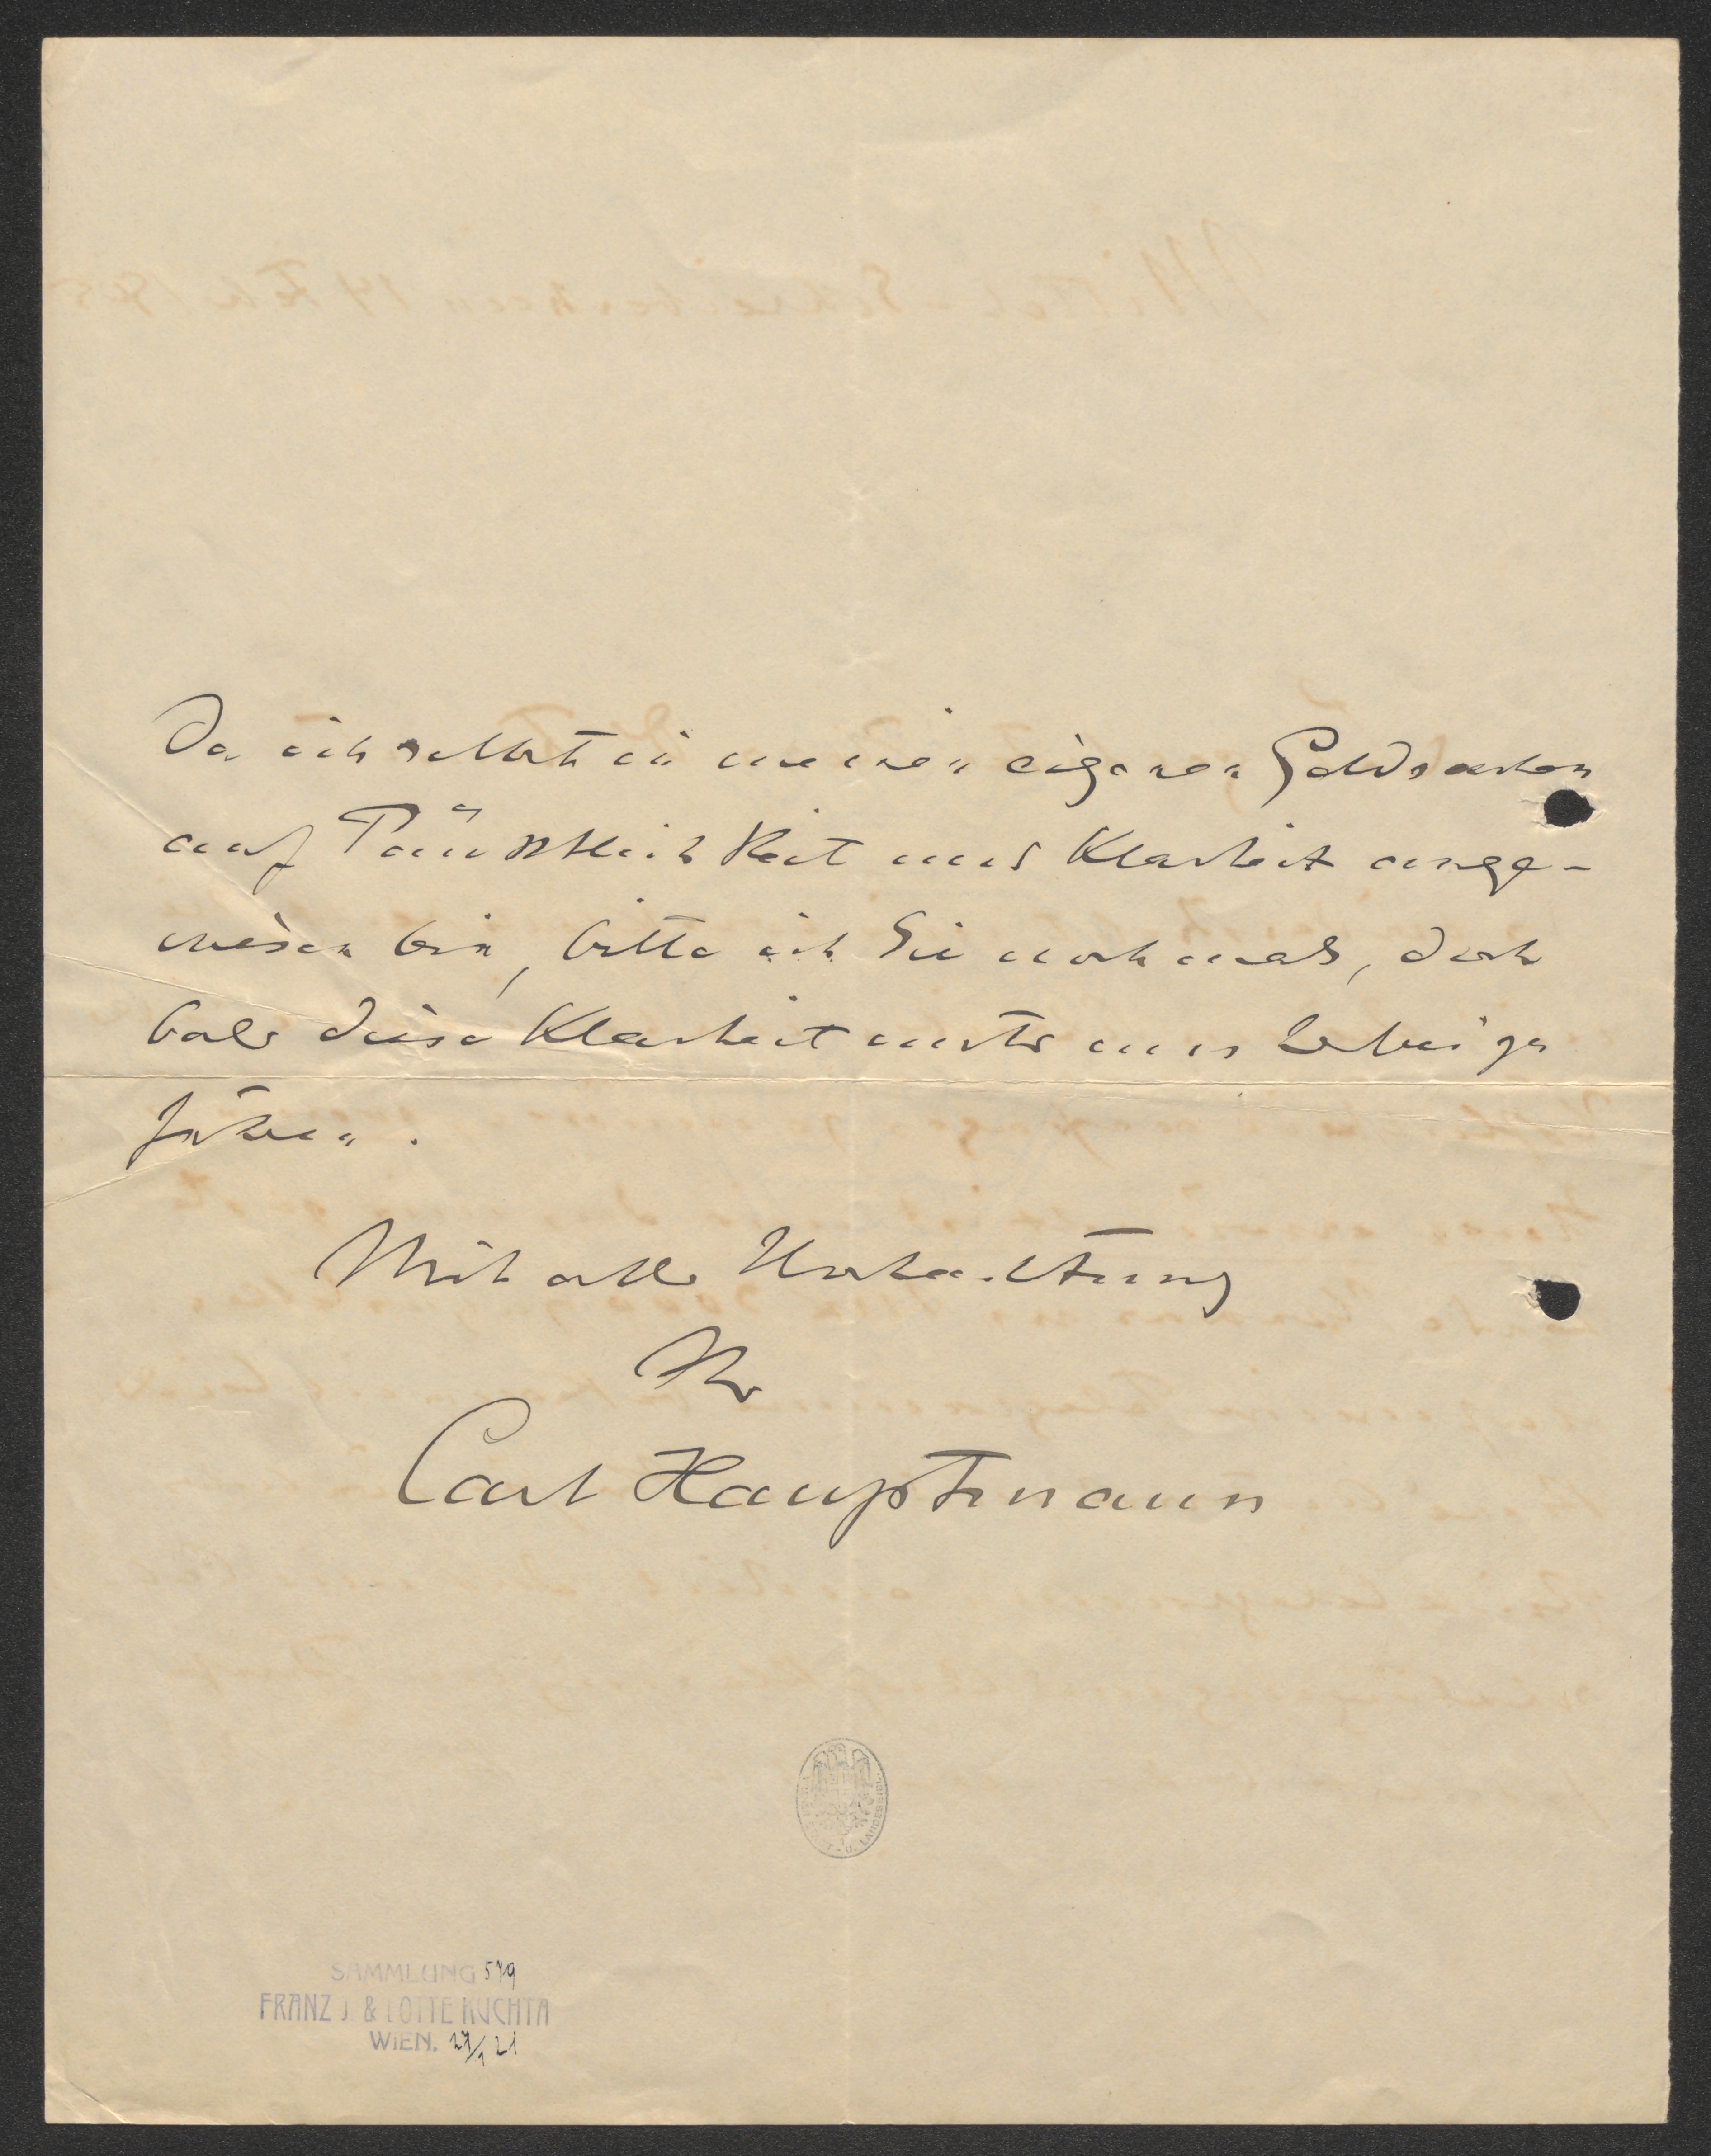 Da ich selbst in meinen eigenen Geldsachen
auf Pünktlichkeit und Klarheit ange-
wiesen bin, bitte ich Sie nochmals, doch
bald diese Klarheit
führen.
Mit aller Hochachtung
Ihr
Carl Hauptmann
SAMMLUNG 579
FRANZ J. & LOTTE KUCHTA
WIEN. 27/1 21